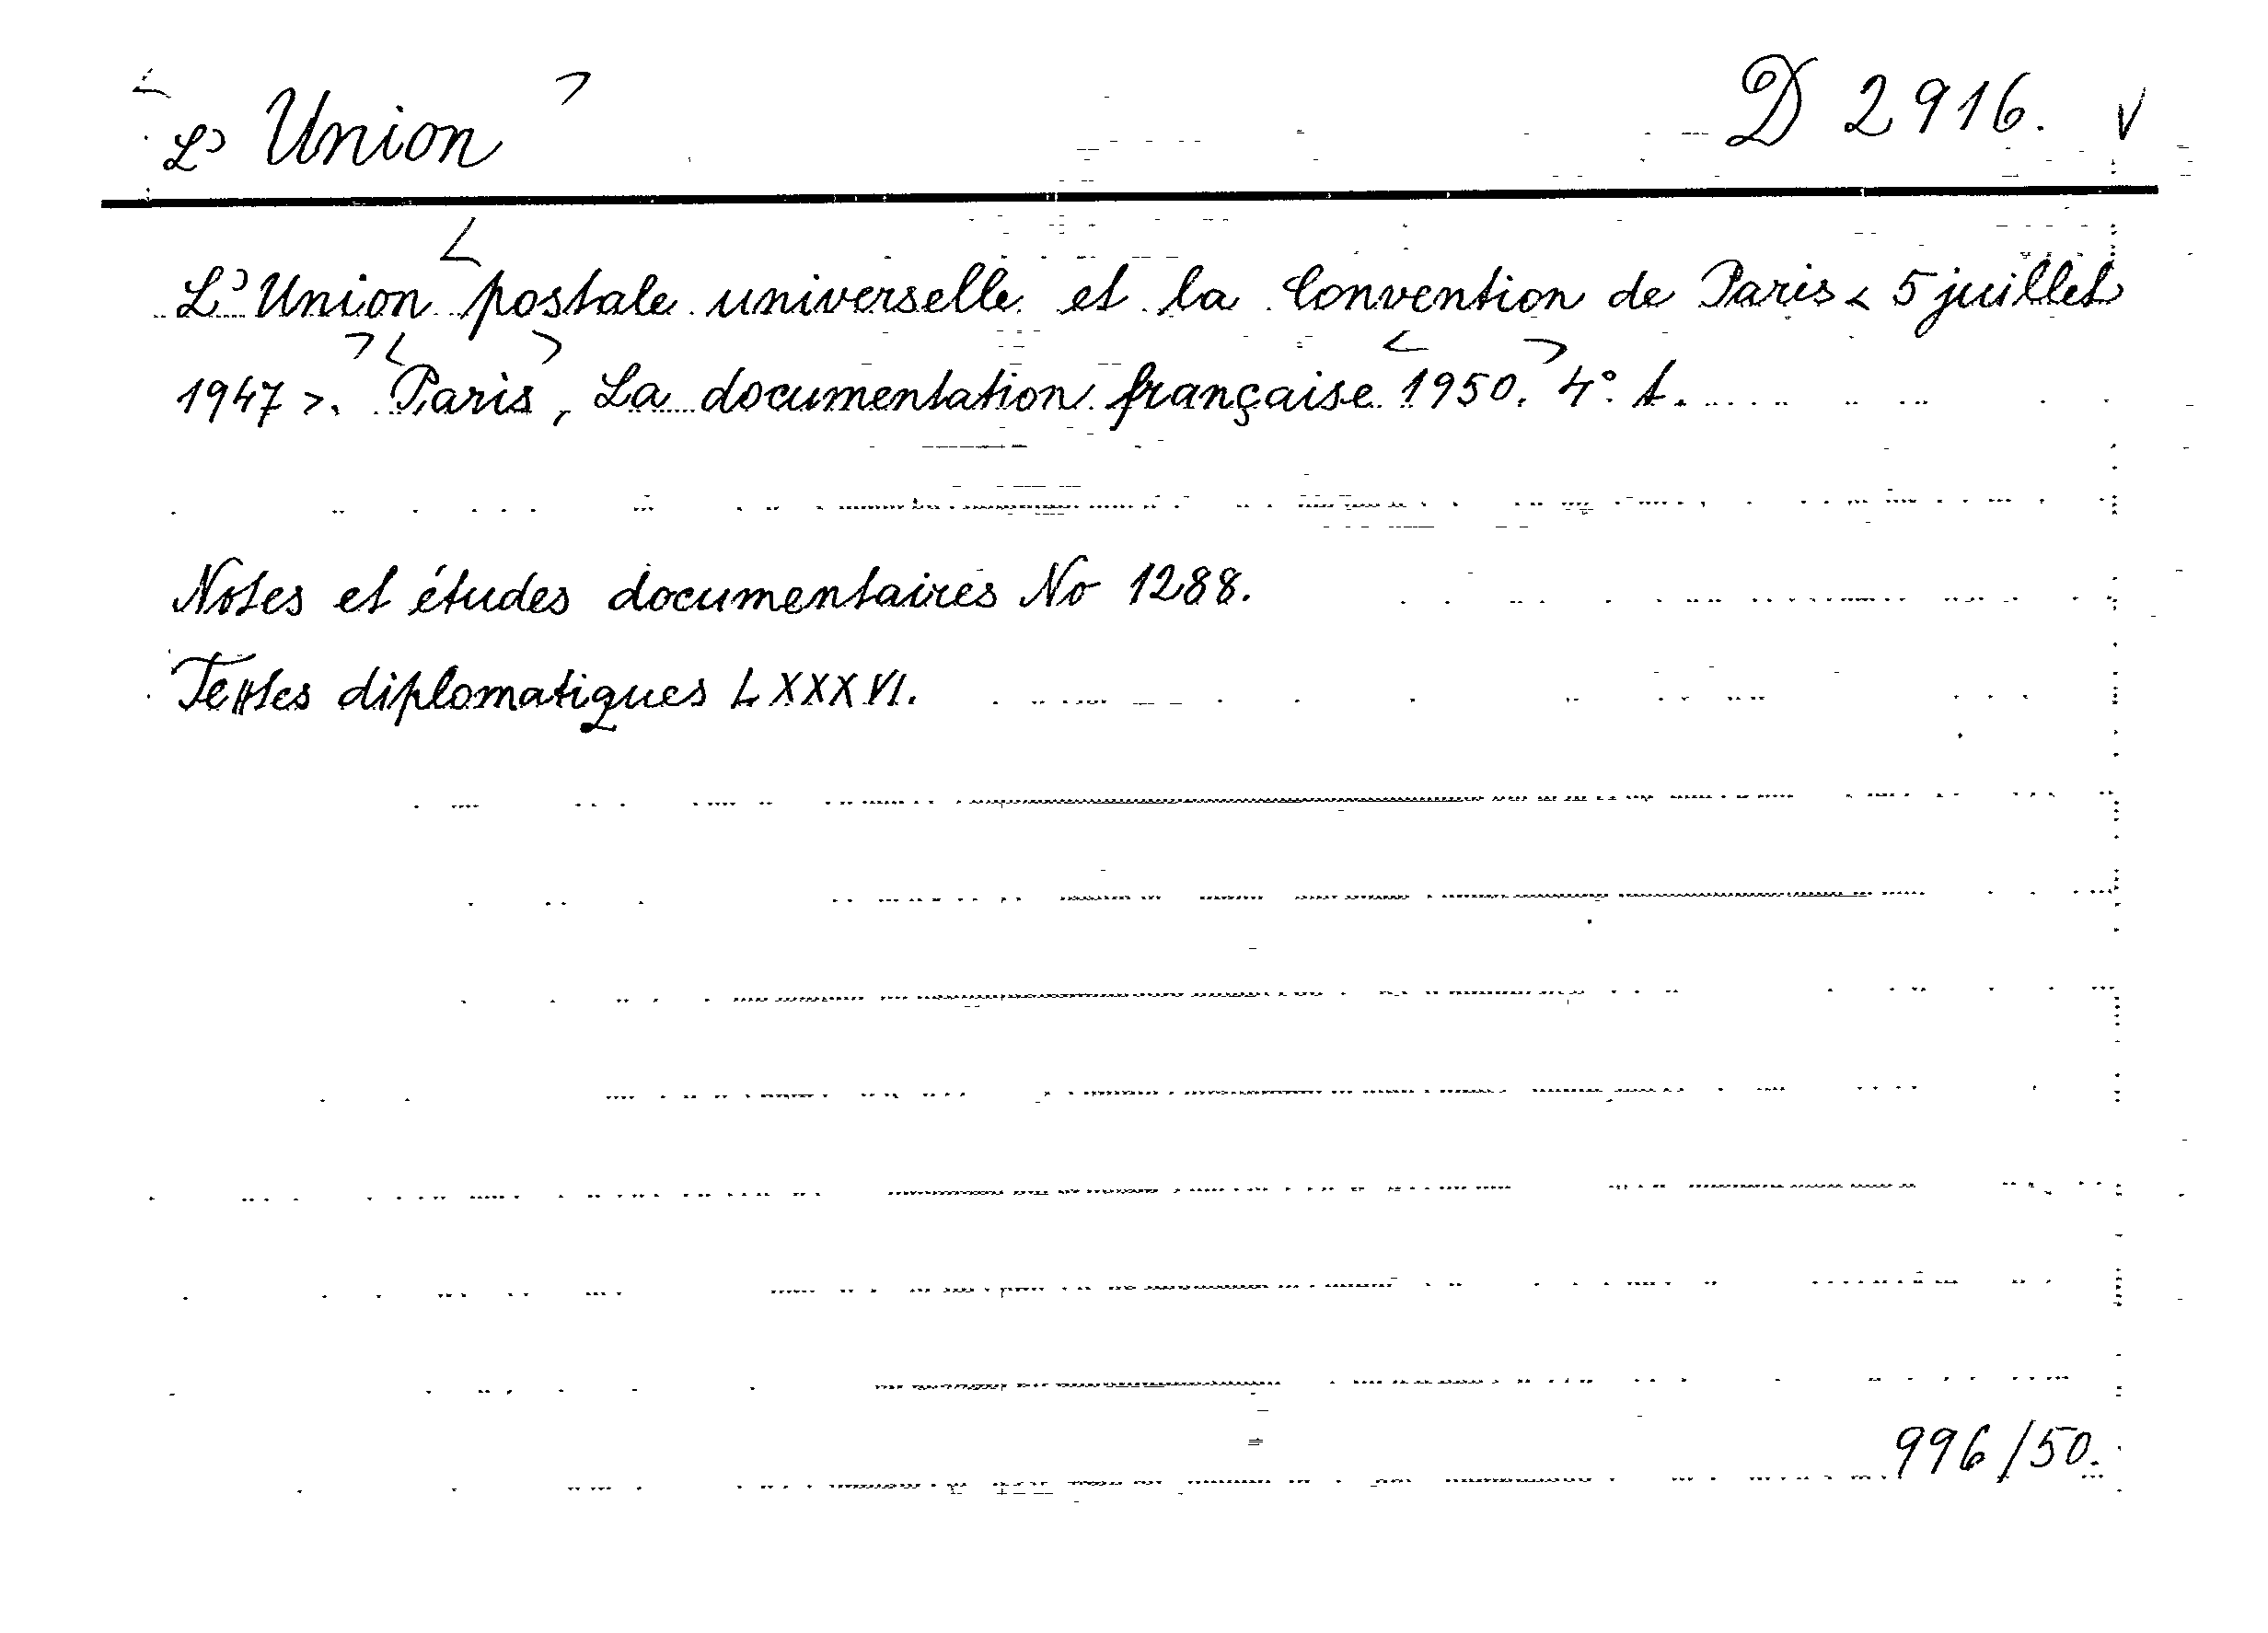 L'Union D 2916. V
L'Union postale universelle et la Convention de Paris < 5 juillet
1947 >. Paris, La documentation française 1950. 4°. t.
Notes et études documentaires No 1288.
Textes diplomatiques LXXXVI.
996/50.